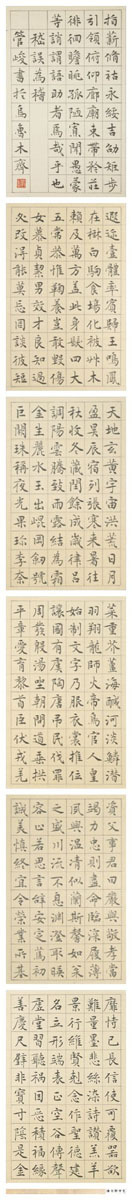 指薪修祜永綏吉劭矩步
引領俯仰廊廟束帶矜莊
徘徊瞻眺孤陋寡聞愚蒙
等誚謂語助者焉哉乎也
管峻書於烏魯木齊
遐邇壹體率賓歸王鳴鳳
在樹白駒食場化被草木
賴及萬方蓋此身髮四大
五常恭惟鞠養豈敢毀傷
女慕貞絜男效才良知過
必改得能莫忘罔談彼短
天地玄黃宇宙洪荒日月
盈昃辰宿列張寒來暑往
秋收冬藏閏餘成歲律呂
調陽雲騰致雨露結為霜
金生麗水玉出崑岡劍號
巨闕珠稱夜光果珍李柰
菜重芥薑海鹹河淡鱗潛
羽翔龍師火帝鳥官人皇
始制文字乃服衣裳推位
讓國有虞陶唐弔民伐罪
周發殷湯坐朝問道垂拱
平章愛育黎首臣伏戎羌
資父事君曰嚴與敬孝當
竭力忠則盡命臨深履薄
夙興溫凊似蘭斯馨如松
之盛川流不息淵澄取映
容止若思言辭安定篤初
誠美慎終宜令榮業所基
靡恃己長信使可覆器欲
難量墨悲絲染詩讚羔羊
景行維賢克念作聖德建
名立形端表正空谷傳聲
虛堂習聽禍因惡積福緣
善慶尺璧非寶寸陰是